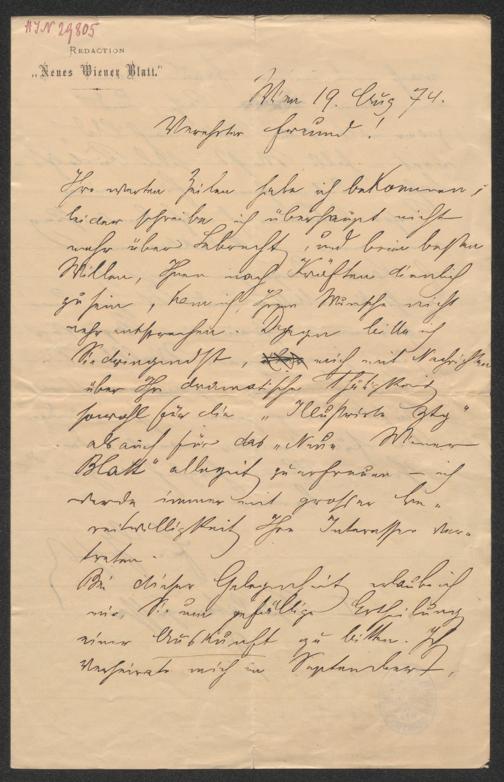 HIN 29805
REDACTION
„Neues Wiener Blatt."
Wien 19. Aug 74.
Verehrter Freund!
Ihre werten Zeilen habe ich bekommen,
leider schreibe ich überhaupt nicht
mehr über , und beim besten
Willen, Ihnen nach Kräften dienlich
zu sein, kann ich Ihrem Wunsche nicht
mehr entsprechen. Dagegen bitte ich
Sie dringendst, mich mit Nachrichten
über Ihre dramatische Thätigkeit
sowohl für die „Illustrirte Ztg"
als auch für das „Neue Wiener
Blatt" allezeit zu erfreuen – ich
werde immer mit grosser Be-
reitwilligkeit Ihre Interessen ver-
treten.
Bei dieser Gelegenheit erlaube ich
mir, Sie um gefällige Ertheilung
einer Auskunft zu bitten. Ich
verheirate mich im September,